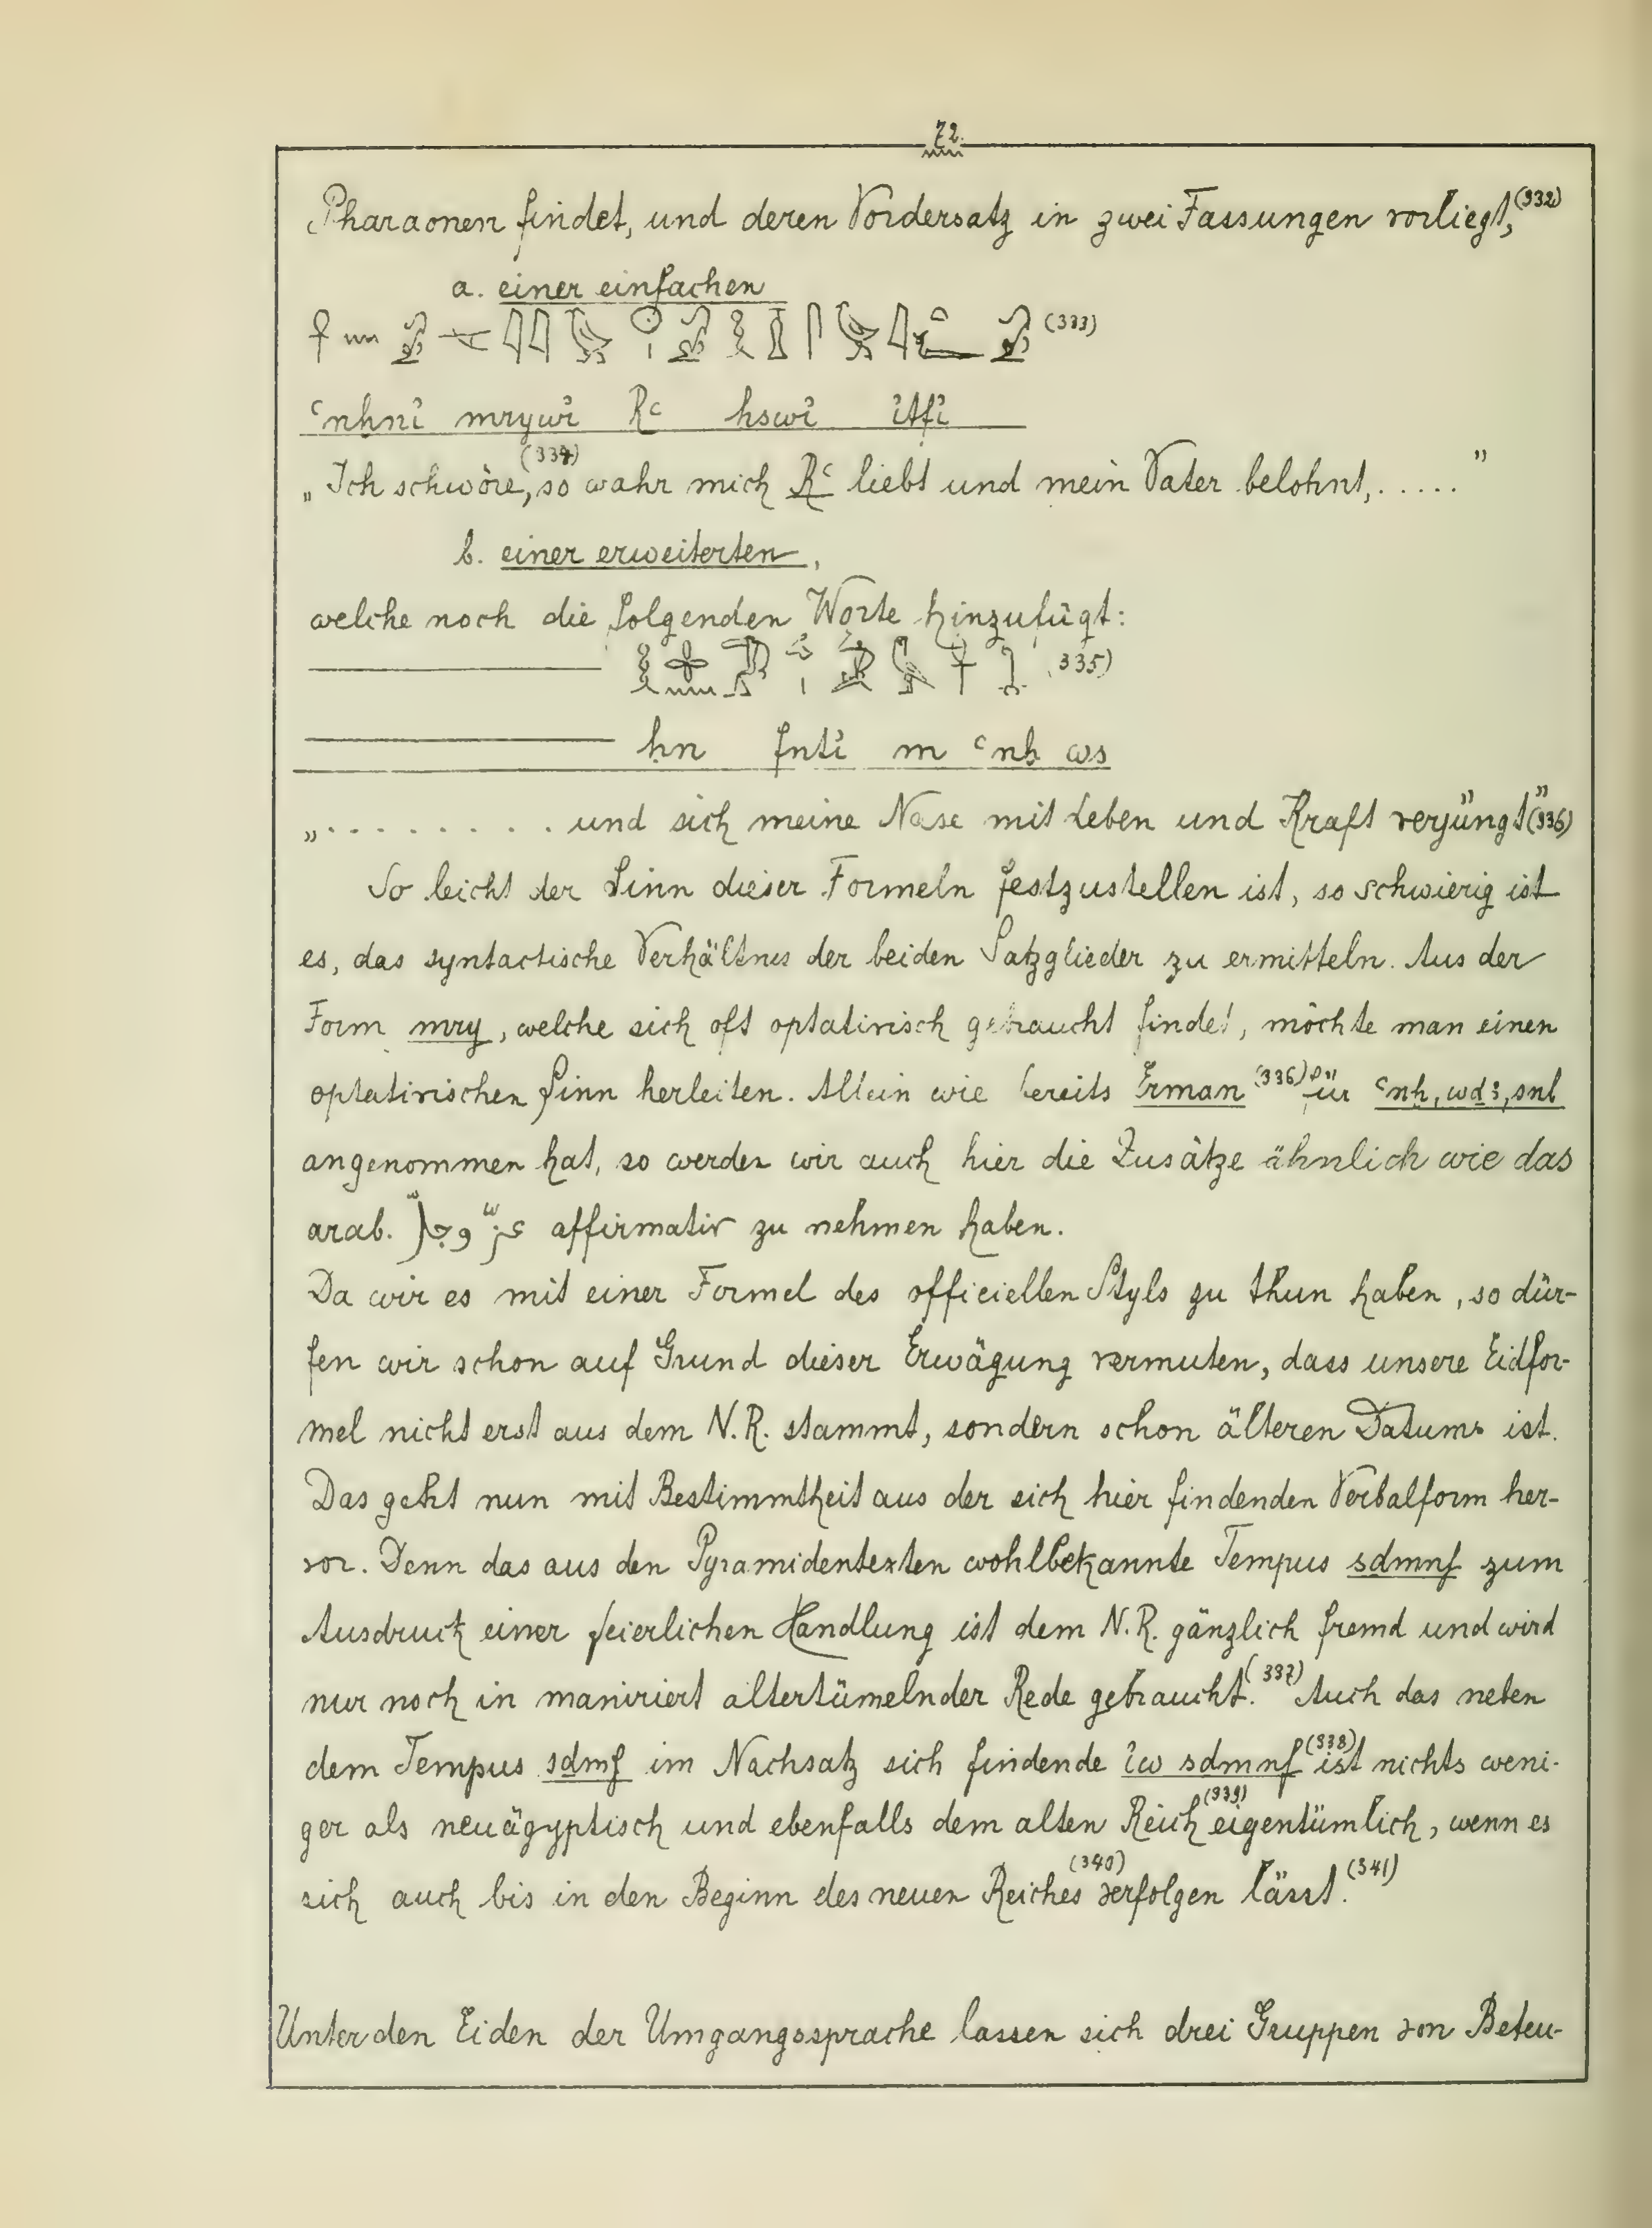 72.
Pharaonen findet, und deren Vordersatz in zwei Fassungen vorliegt,(332)
a. einer einfachen
(333)
ꜥnḫnı̓ mrywı̓ Rꜥ ḥswı̓ ı̓tfı̓
„Ich schwöre,(334) so wahr mich Rꜥ liebt und mein Vater belohnt,....."
b. einer erweiterten,
welche noch die folgenden Worte hinzufügt:
335)
ḥn fntı̓ m ꜥnḫ ws
„.......... und sich meine Nase mit Leben und Kraft verjüngt"(336)
So leicht der Sinn dieser Formeln festzustellen ist, so schwierig ist
es, das syntactische Verhältnis der beiden Satzglieder zu ermitteln. Aus der
Form mry, welche sich oft optativisch gebraucht findet, möchte man einen
optativischen Sinn herleiten. Allein wie bereits Erman (336) für ꜥnḫ, wdꜣ, snb
angenommen hat, so werden wir auch hier die Zusätze ähnlich wie das
arab. عزّ وجلّ affirmativ zu nehmen haben.
Da wir es mit einer Formel des officiellen Styls zu thun haben, so dür-
fen wir schon auf Grund dieser Erwägung vermuten, dass unsere Eidfor-
mel nicht erst aus dem N.R. stammt, sondern schon älteren Datums ist.
Das geht nun mit Bestimmtheit aus der sich hier findenden Verbalform her-
vor. Denn das aus den Pyramidentexten wohlbekannte Tempus sdmnf zum
Ausdruck einer feierlichen Handlung ist dem N.R. gänzlich fremd und wird
nur noch in maniriert altertümelnder Rede gebraucht.(337) Auch das neben
dem Tempus sdmf im Nachsatz sich findende ı̓w sdmnf(338) ist nichts weni-
ger als neuägyptisch und ebenfalls dem alten Reich(339) eigentümlich, wenn es
sich auch bis in den Beginn des neuen Reiches(340) verfolgen lässt.(341)
Unter den Eiden der Umgangssprache lassen sich drei Gruppen von Beteu-